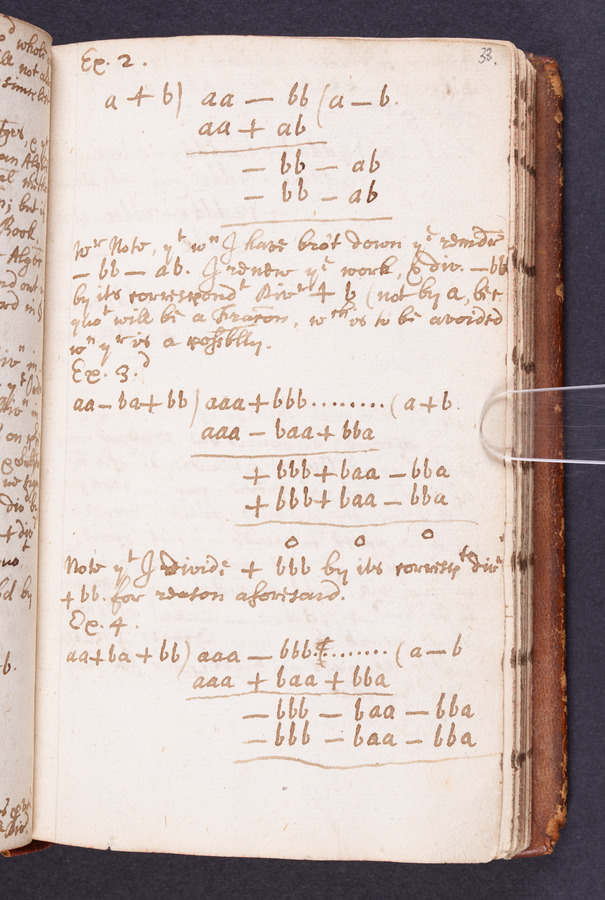 33.
Ex. 2.
a + b) aa — bb (a — b.
aa + ab
— bb — ab
— bb — ab
Wr Note, yt wn I have bro't down ye remdr
— bb — ab. I renew ye work, & div. — bb
by its correspondt Divr + b (not by a, bec.
quot will be a fracon, wch is to be avoided
wn yr is a possiblly.
Ex. 3.d
aa — ba + bb) aaa + bbb ........ (a + b.
aaa — baa + bba
+ bbb + baa — bba
+ bbb + baa — bba
o o o
Note yt I divide + bbb by its corresptdivr
+ bb. for reason aforesaid.
Ex. 4.
aa + ba + bb) aaa — bbb ........ (a — b
aaa + baa + bba
— bbb — baa — bba
— bbb — baa — bba